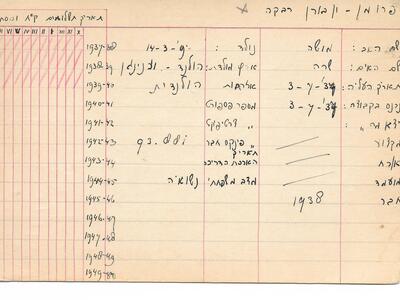 פרומן - ון בורן רבקה
תאריך תשלומות קפ"ח ונוספ
שם האב: משה נולד: 14-3- 1937-38
שם האם: שרה ארץ מולדת: הולנד - 1938-39
תאריך העליה: 3-7-34' אזרחות הולנדית 1939-40
3-7-34' מספר פספורט 1940-41
" סרטיפקט 1941-42
" פינקס חבר 93.881 1942-43
תאריך
1943-44
מצב משפחתי נשואה 1944-45
חבר 1938 1945-46
1946-47
1947-48
1948-49
1949-50